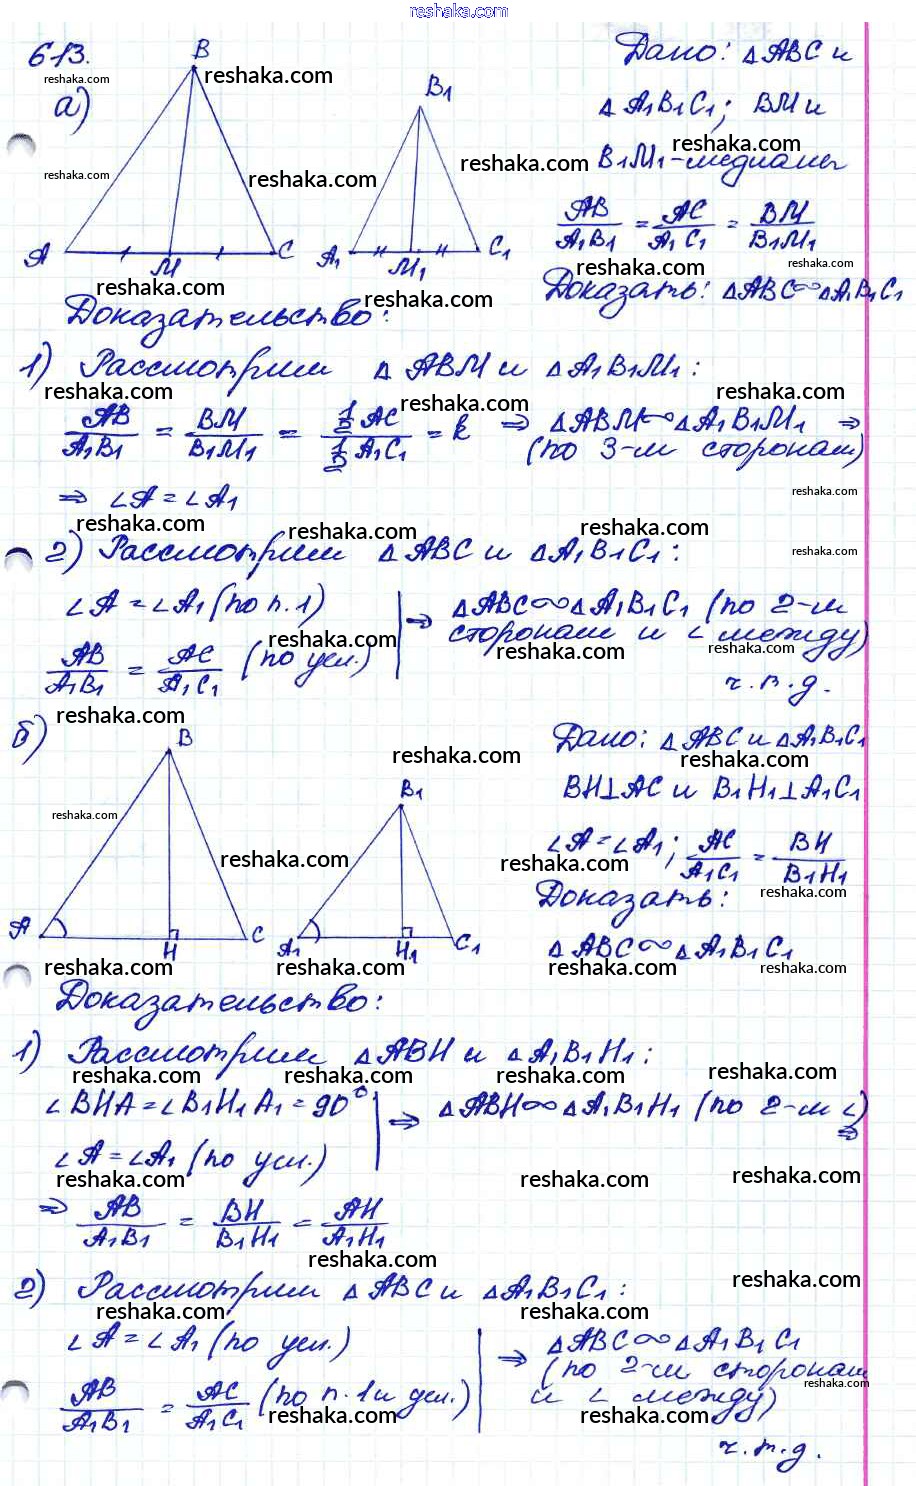 reshaka.com
613.
а)
B
A
M
C
B₁
A₁
M₁
C₁
Дано: △ABC и
△A₁B₁C₁; BM и
B₁M₁-медианы
AB/A₁B₁ = AC/A₁C₁ = BM/B₁M₁
Доказать: △ABC∾△A₁B₁C₁
Доказательство:
1) Рассмотрим △ABM и △A₁B₁M₁:
AB/A₁B₁ = BM/B₁M₁ = ½AC/½A₁C₁ = k ⇒ △ABM∾△A₁B₁M₁ ⇒
(по 3-м сторонам)
⇒ ∠A = ∠A₁
2) Рассмотрим △ABC и △A₁B₁C₁:
∠A = ∠A₁ (по п.1)
AB/A₁B₁ = AC/A₁C₁ (по усл.)
⇒ △ABC∾△A₁B₁C₁ (по 2-м
сторонам и ∠ между)
ч.т.д.
б)
B
A
H
C
B₁
A₁
H₁
C₁
Дано: △ABC и △A₁B₁C₁
BH⊥AC и B₁H₁⊥A₁C₁
∠A = ∠A₁; AC/A₁C₁ = BH/B₁H₁
Доказать:
△ABC∾△A₁B₁C₁
Доказательство:
1) Рассмотрим △ABH и △A₁B₁H₁:
∠BHA = ∠B₁H₁A₁ = 90°
∠A = ∠A₁ (по усл.)
⇒ △ABH∾△A₁B₁H₁ (по 2-м ∠) ⇒
⇒ AB/A₁B₁ = BH/B₁H₁ = AH/A₁H₁
2) Рассмотрим △ABC и △A₁B₁C₁:
∠A = ∠A₁ (по усл.)
AB/A₁B₁ = AC/A₁C₁ (по п.1 и усл.)
⇒ △ABC∾△A₁B₁C₁
(по 2-м сторонам
и ∠ между)
ч.т.д.